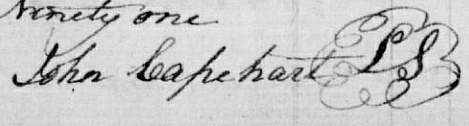 Ninety one
John Capehart L S